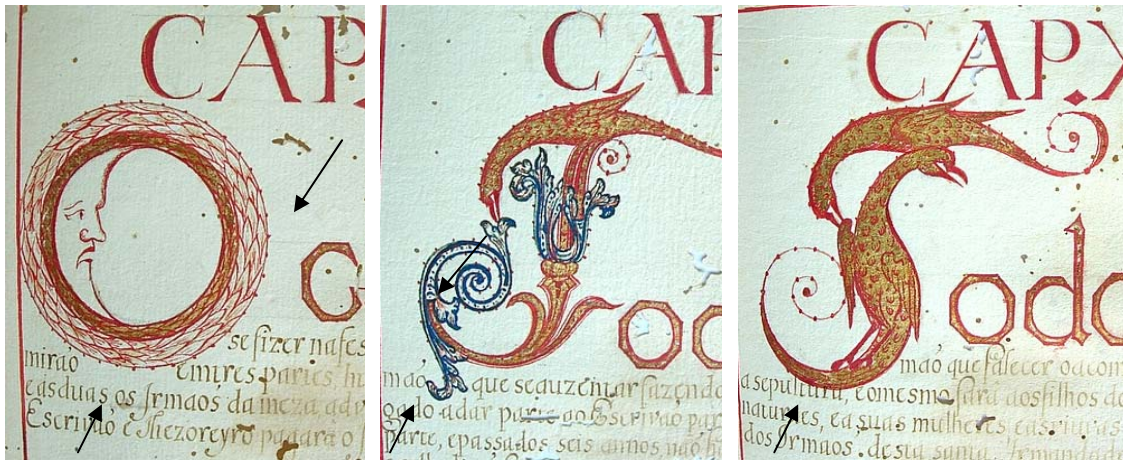 CAP
O G
se fizer nafes
mirao
eas duas, os Irmaos da meza
Escrivaõ e Thezoreyro pagaraõ o
CAP
T oo
mao que seauzentar fazendo
adar parte ao Escrivaõ par
parte, epassados seis annos, naõ
CAP.X
T odo
maõ que falecer ocom
a sepultura, eomesmo fará aosfilhos
naturaes, ea suas mulheres
dos Irmaos. desta santa. Irmanda